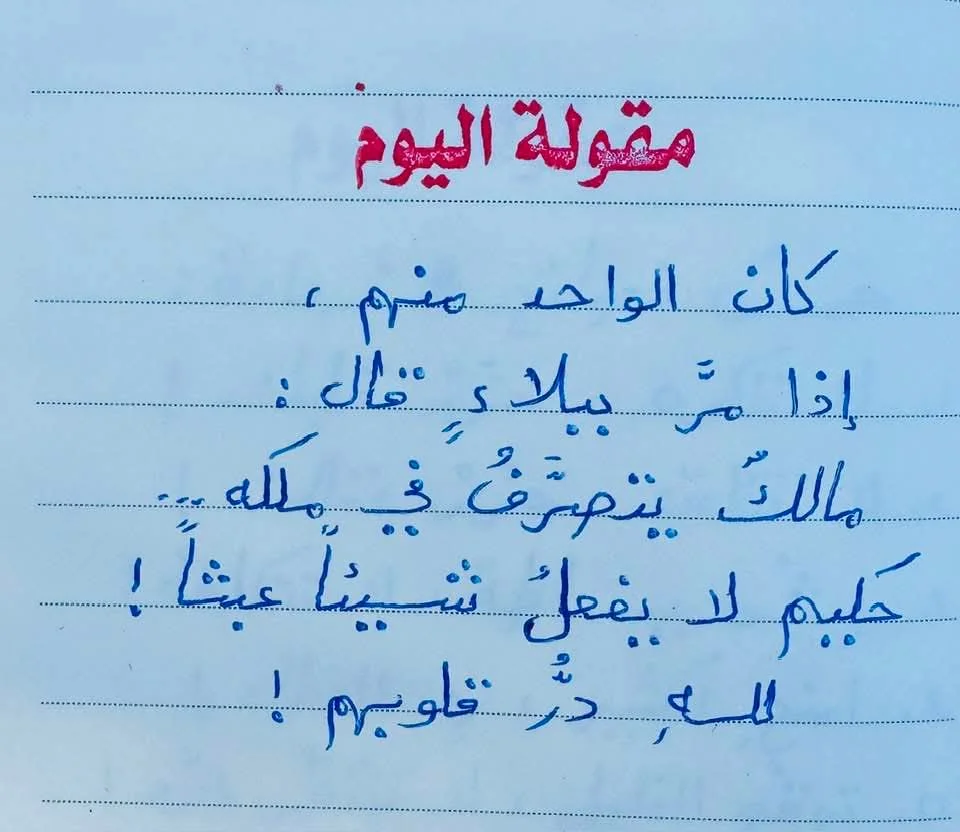 مقولة اليوم
كان الواحد منهم ،
إذا مرَّ ببلاءٍ قال :
مالكٌ يتصرَّفُ في ملكه ...
حكيم لا يفعلُ شيئاً عبثاً !
للهِ درُّ قلوبهم !